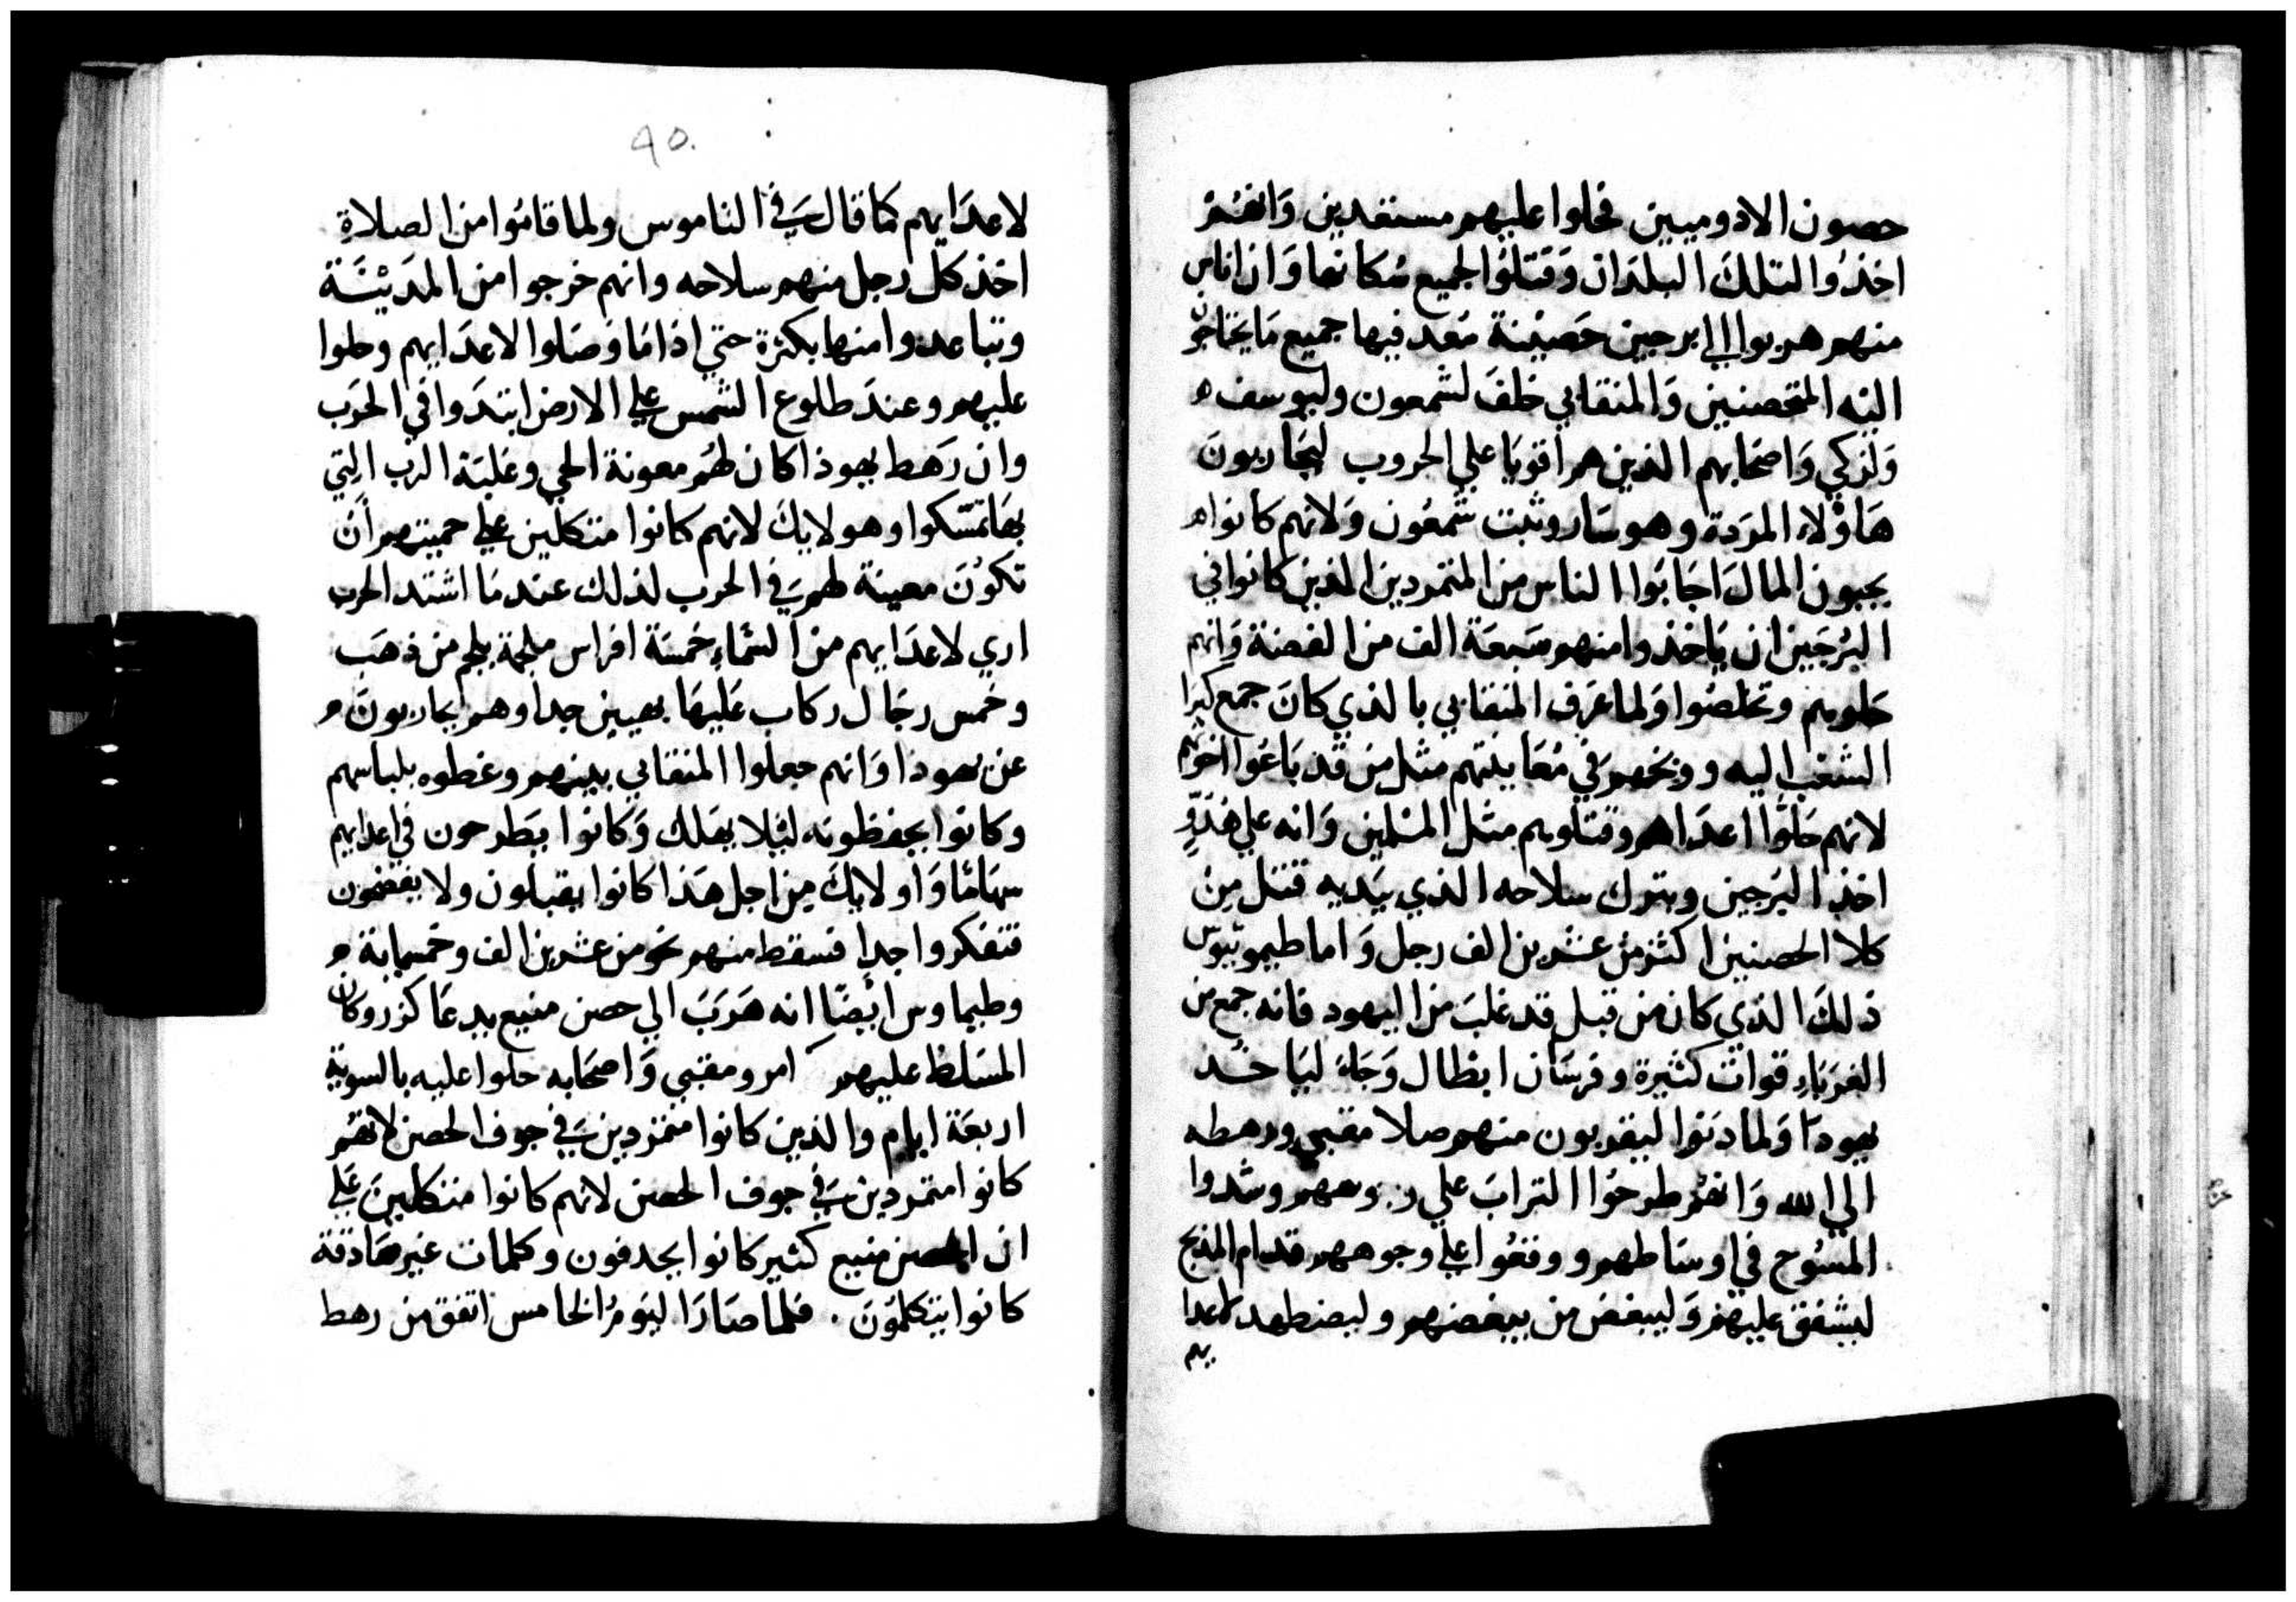 حصون الادوميين فحلوا عليهم مستعدين وَانهُمْ
اخذُوا لتلكَ البلدَان وَقتلوُا لجميع سُكانها وَان اناس
منهم هربوا الي ابرجين حَصينة مُعد فيها جميع مَا يحتاجون
اليَه المتحصنين وَالمنقابي خلفَ لشمعون وليوسف
وَلزكي وَاصحَابهم الذين هم اقويَا علي الحروب ليحَاربونَ
هَاوْلاء المرَدة وهو سَار وثبت شمعُون وَلانهم كانوا
يحبون المالَ اجَابوُا الناس من المتمردين الذين كانوا في
البُرجَين ان يَاخذوا منهم سَبعَة الف من الفضة وَانهم
حَلوهم وتخلصُوا وَلما عَرف المنقابي بالذي كانَ جمع كبرا
الشعب اليه ووبخهم في مُعَاينتهم مثل من قد بَاعُوا اخوتهم
لانهم حَلوُّا اعدَاهم وقتلوهم مثل المسْلمين وَانه علي هُدوِّ
اخذ البرَجين وبترك سلاحه الذي بيَديه قتل مِن
كلا الحصنين اكثر من عشرين الف رجل وَاما طيموتيوس
ذلكَ الذي كان من قبل قد غلبَ من اليهود فانه جمع من
الغرَباء قوات كثيرة وفرسَان ابطال وَجَاء ليَاخد
يهودَا وَلما دنوُا ليقربون منهم صلا مقبي ورهطه
الي الله وَانهُم طرحُوا الترابَ علي روسهم وشدوا
المسُوح في اوسَاطهم ووقعُوا علي وجوههم قدام المذبح
ليشفق عليهم وَليبغض من يبغضهم وليضطهد لاعدا
يهم
90.
لاعدَايهم كما قالَ في الناموس ولما قامُوا من الصلاةِ
اخذ كل رجل منهم سلاحه وانهم خرجوا من المَديْنَة
وتباعدوا منها بكثرة حتي اذا مَا وَصَلوا لاعدَايهم وحلوا
عليهم وعندَ طلوع الشمس علي الارض ابتدَوا في الحرَب
وان رَهط يهوذا كان لهُم معونة الحي وغلبَة الرب التي
بهَا تمسّكوا وهولايكَ لانهم كانوا متكلين علي حميتهم أن
تكوُنَ معينة لهم في الحرب لذلك عندمَا اشتد الحرب
اري لاعدَايهم من السَّماءِ خمسَة افراس ملجمة بلجم من ذهَب
وخمس رجَال ركاب عَليهَا بهيين جدا وهم يحاربونَ
عن يهودا وَانهم جعلوا المنقابي بينهم وغطوه بلباسهم
وكانوا يحفظونه ليَلا يهلك وَكانوا يَطرحون في اعدايهم
سهَامًا وَاولايكَ من اجل هَذا كانوا يقبلون ولا يفهمون
فتفكروا جدا فسقط منهم نحو من عشرين الف وخمسماية
وطيماوس ايضًا انه هَرَبَ الي حصن منيع يدعَا كزر وكان
المسَلط عليهم امر ومقبي وَاصحَابه حلوا عليه بالسوية
اربعَة ايام والذين كانوا متمردين في جوف الحصن لانهُم
كانوا متمردين في جوف الحصن لانهم كانوا متكلينَ عَلي
ان الحصن منيع كثير كانوا يجدفون وكلمات غير صَادقة
كانوا يَتكلمُونَ . فلما صَارَ اليَومُ الخامس اتفق من رهط